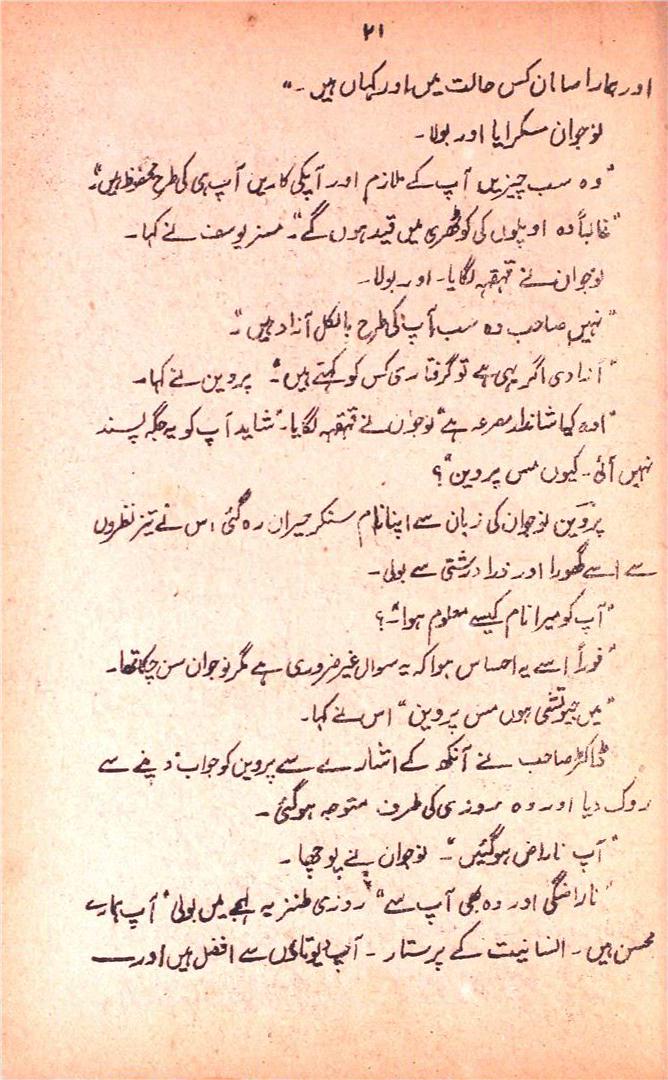 ۲۱
اور ہمارا سامان کس حالت میں اور کہاں ہیں ۔"
نوجوان مسکرایا اور بولا ۔
"وہ سب چیزیں آپ کے ملازم اور آپکی کاریں آپ ہی کی طرح محفوظ ہیں ۔"
"غالباً وہ اوپلوں کی کوٹھری میں قید ہوں گے ۔" مسز یوسف نے کہا ۔
نوجوان نے قہقہہ لگایا ۔ اور بولا ۔
"نہیں صاحب وہ سب آپ کی طرح بالکل آزاد ہیں ۔"
"آزادی اگر یہی ہے تو گرفتاری کس کو کہتے ہیں ۔" پروین نے کہا ۔
"اوہ کیا شاندار مصرعہ ہے" نوجوان نے قہقہہ لگایا ۔ "شاید آپ کو یہ جگہ پسند
نہیں آئی ۔ کیوں مس پروین" ؟
پروین نوجوان کی زبان سے اپنا نام سنکر حیران رہ گئی اس نے تیز نظروں
سے اسے گھورا اور ذرا درشتی سے بولی ۔
"آپ کو میرا نام کیسے معلوم ہوا ۔" ؟
"فوراً اسے یہ احساس ہوا کہ یہ سوال غیر ضروری ہے مگر نوجوان سن چکا تھا ۔
"میں جیوتشی ہوں مس پروین" اس نے کہا ۔
ڈاکٹر صاحب نے آنکھ کے اشارے سے پروین کو جواب دینے سے
روک دیا اور وہ روزی کی طرف متوجہ ہوگئی ۔
"آپ ناراض ہوگئیں ۔" نوجوان نے پوچھا ۔
"ناراضگی اور وہ بھی آپ سے" روزی طنزیہ لہجے میں بولی "آپ ہمارے
محسن ہیں ۔ انسانیت کے پرستار ۔ آپ دیوتاؤں سے افضل ہیں اور ——